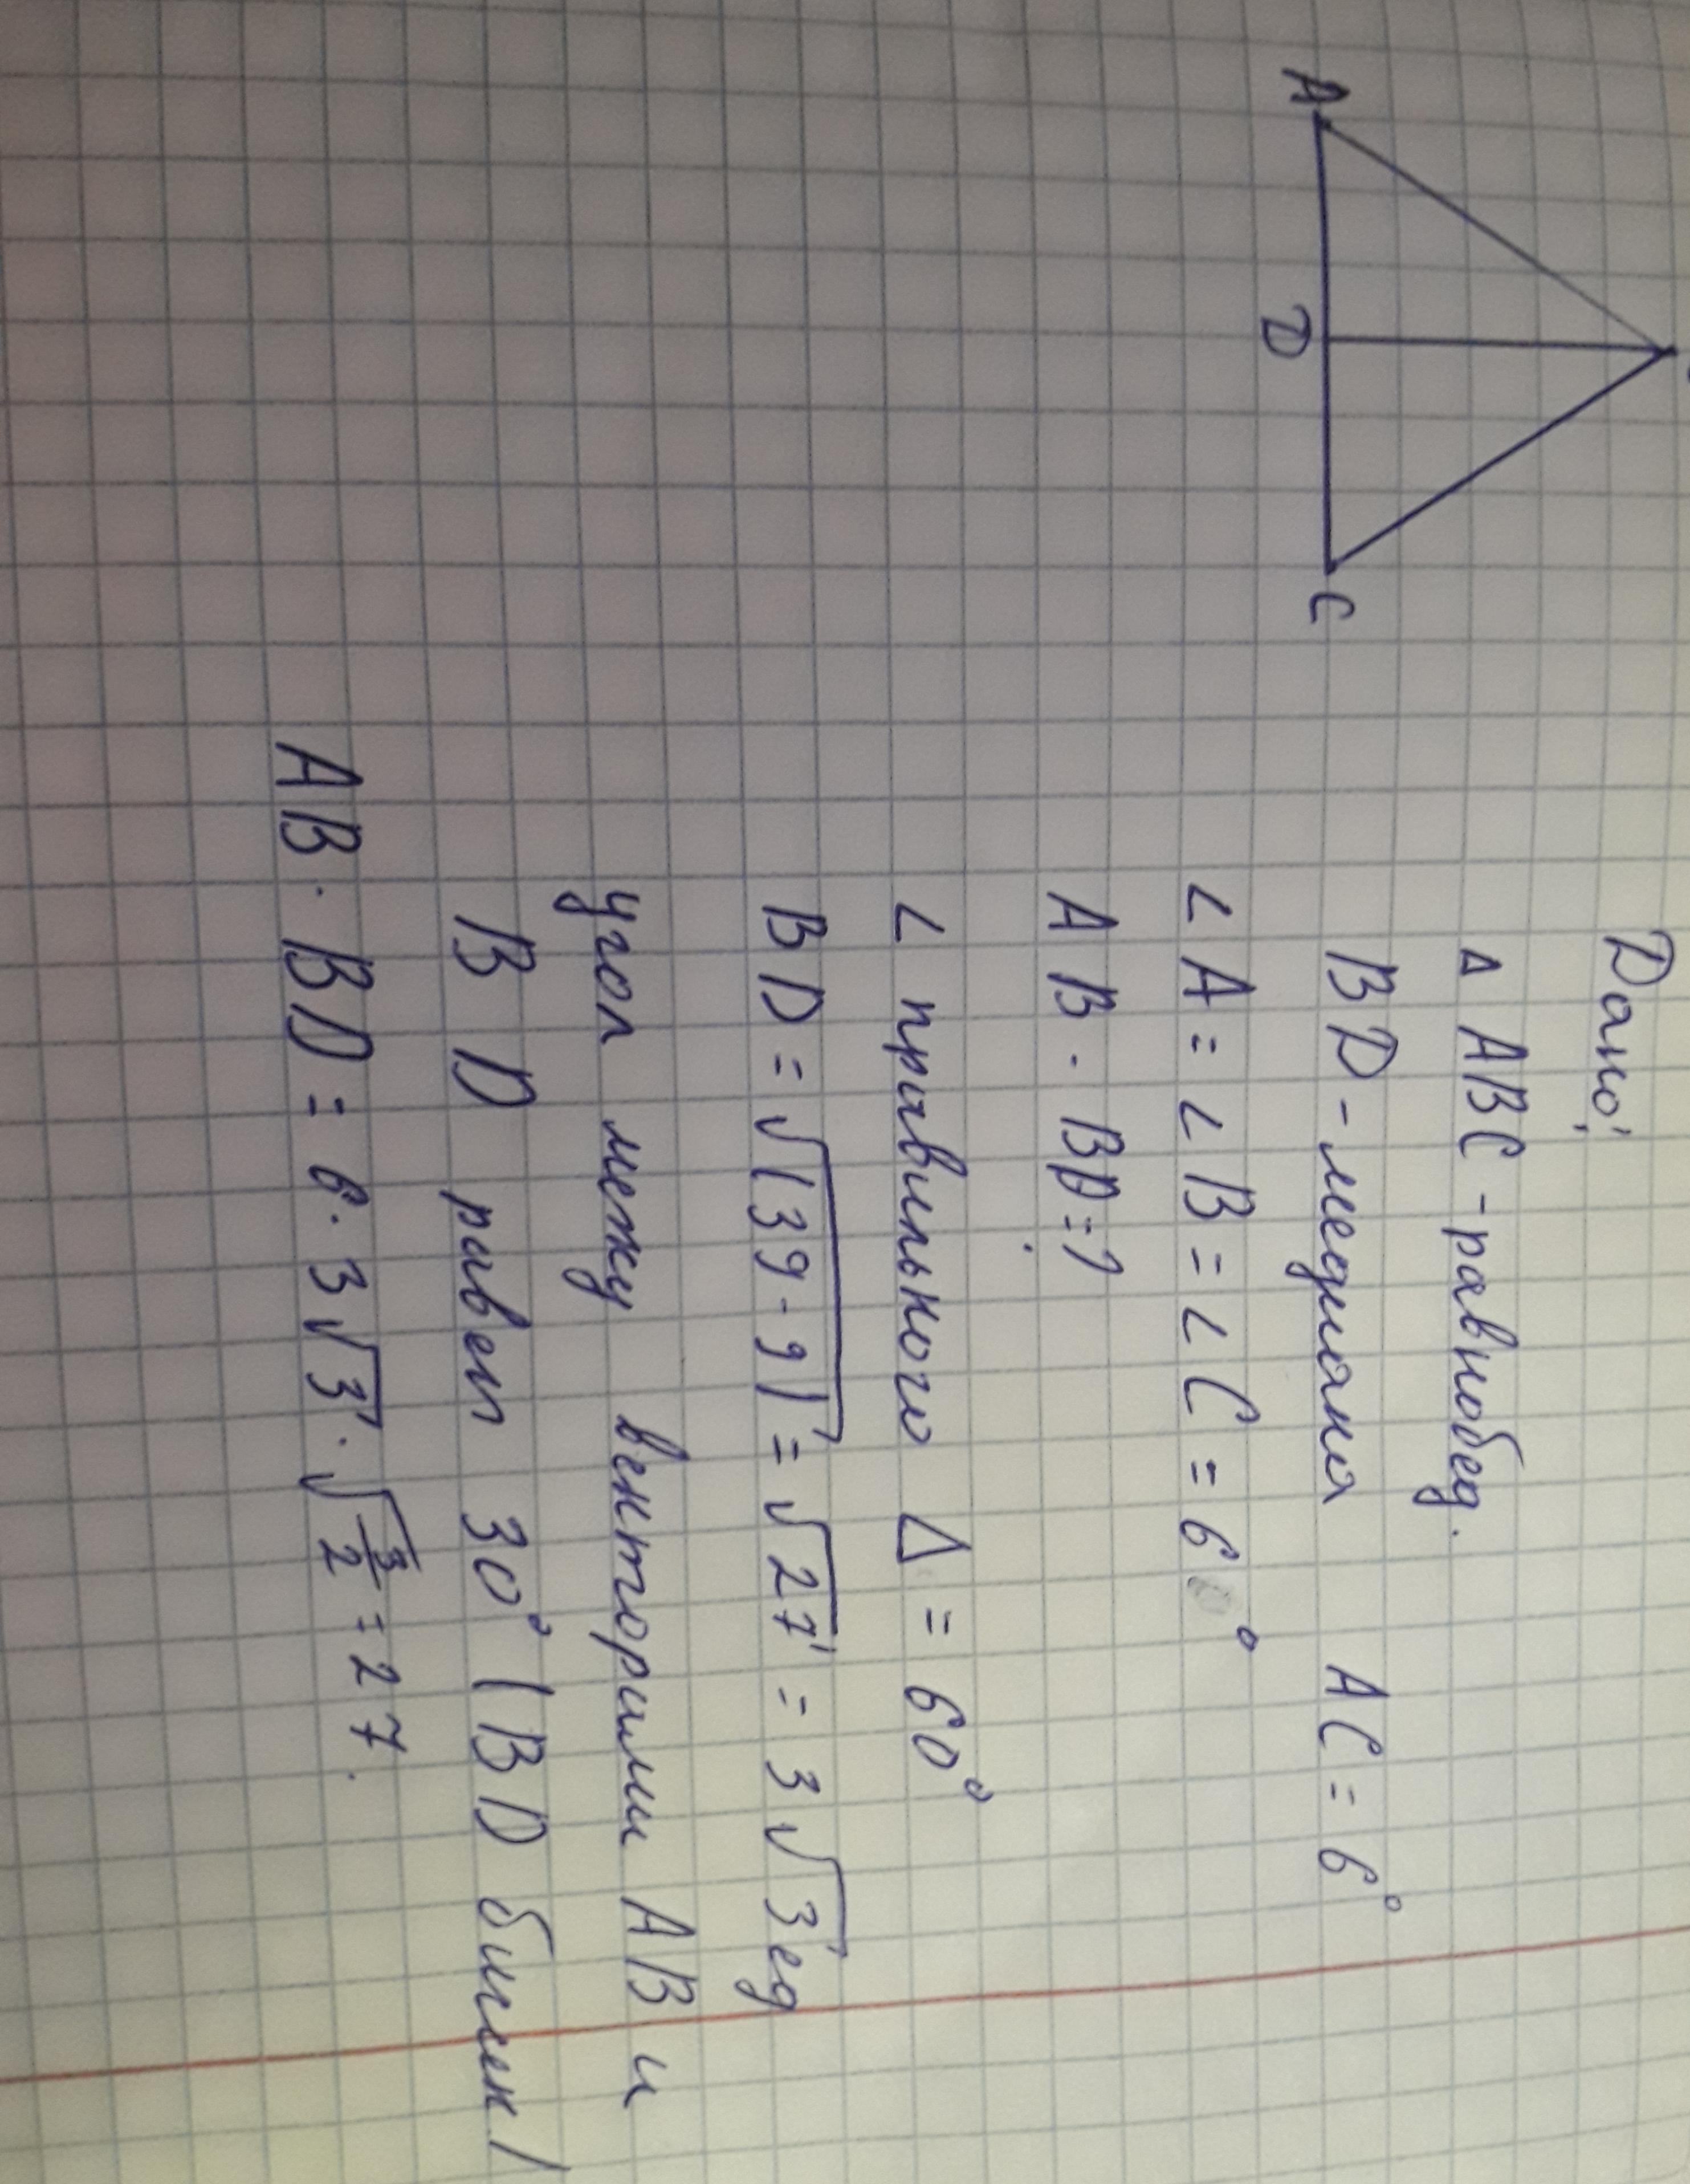 A
D
C
Дано:
△ ABC - равнобед.
BD - медиана AC = 6°
∠A = ∠B = ∠C = 60°
AB · BD = ?
∠ правильного △ = 60°
BD = √(39 - 9) = √27 = 3√3 ед
угол межу векторами AB и
BD равен 30° (BD биссек)
AB · BD = 6 · 3√3 · √3/2 = 27.